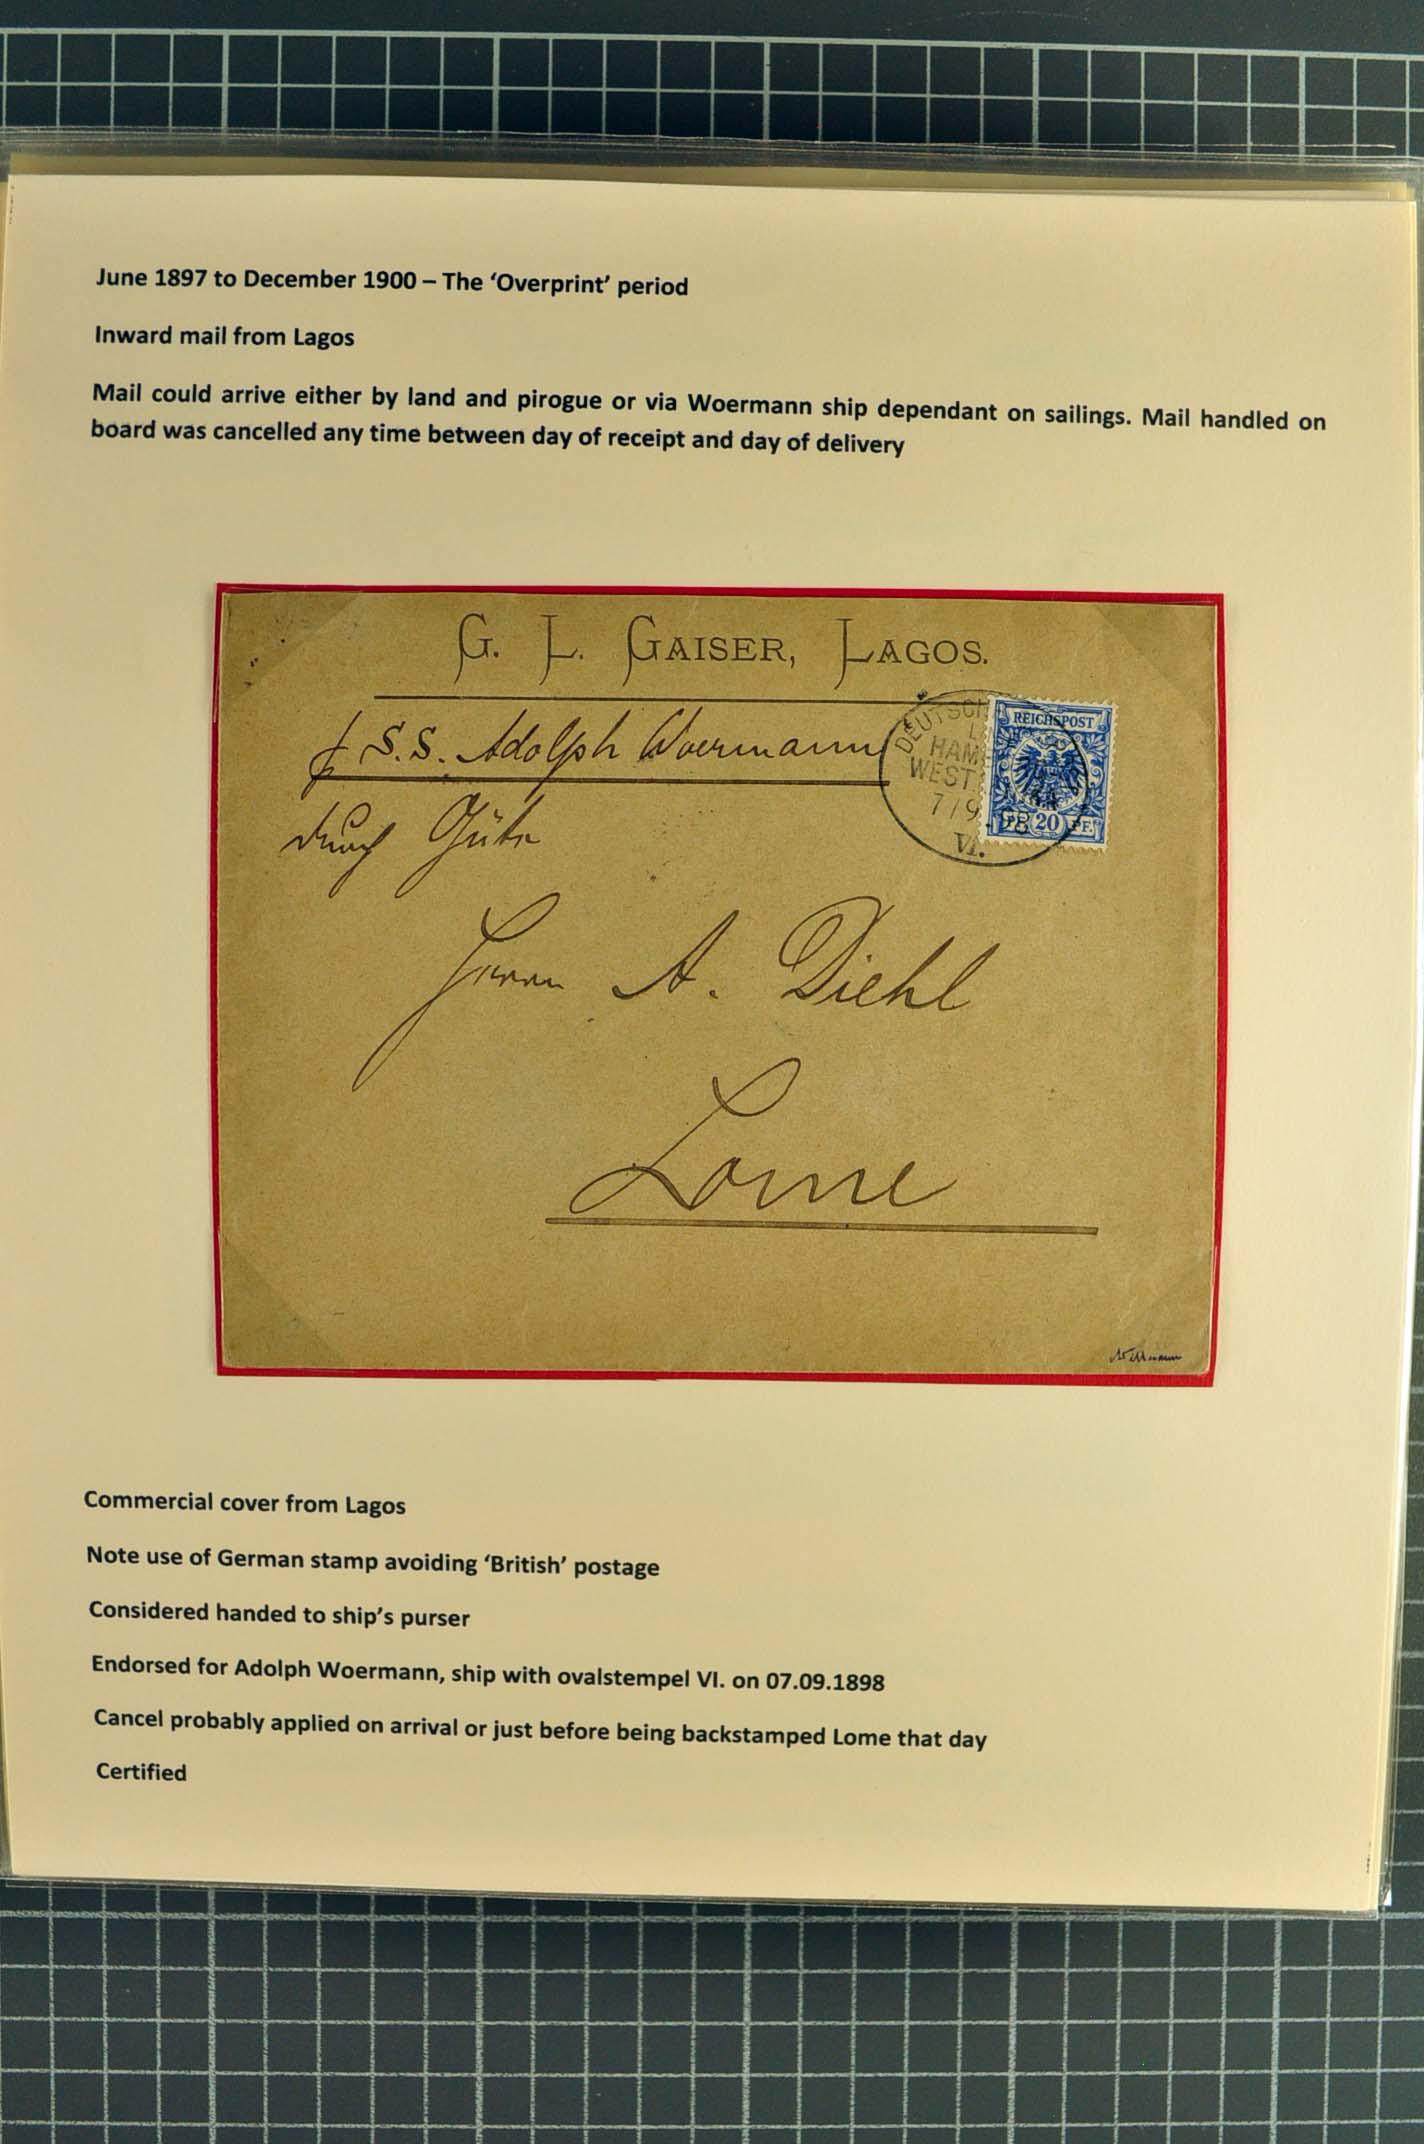 June 1897 to December 1900 – The ‘Overprint’ period
Inward mail from Lagos
Mail could arrive either by land and pirogue or via Woermann ship dependant on sailings. Mail handled on
board was cancelled any time between day of receipt and day of delivery
G. L. GAISER, LAGOS.
p S.S. Adolph Woermann
durch Güte
Herrn A. Diehl
Lome
DEUTSCH
HAM
WEST
7/9 98
VI.
REICHSPOST
PF. 20 PF.
Commercial cover from Lagos
Note use of German stamp avoiding ‘British’ postage
Considered handed to ship’s purser
Endorsed for Adolph Woermann, ship with ovalstempel VI. on 07.09.1898
Cancel probably applied on arrival or just before being backstamped Lome that day
Certified